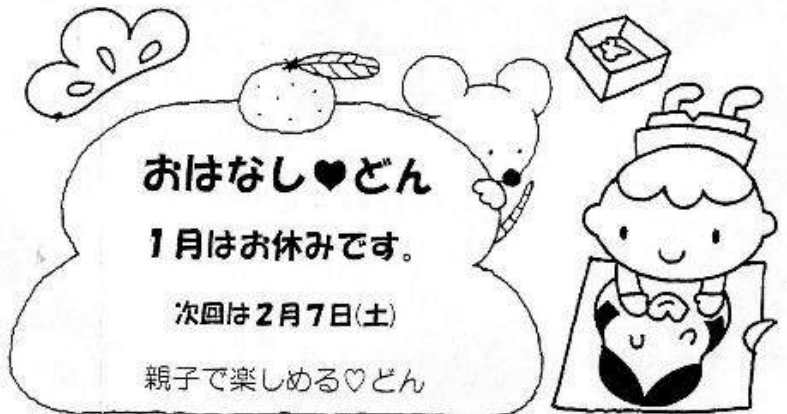 おはなし♥どん
1月はお休みです。
次回は2月7日(土)
親子で楽しめる♡どん